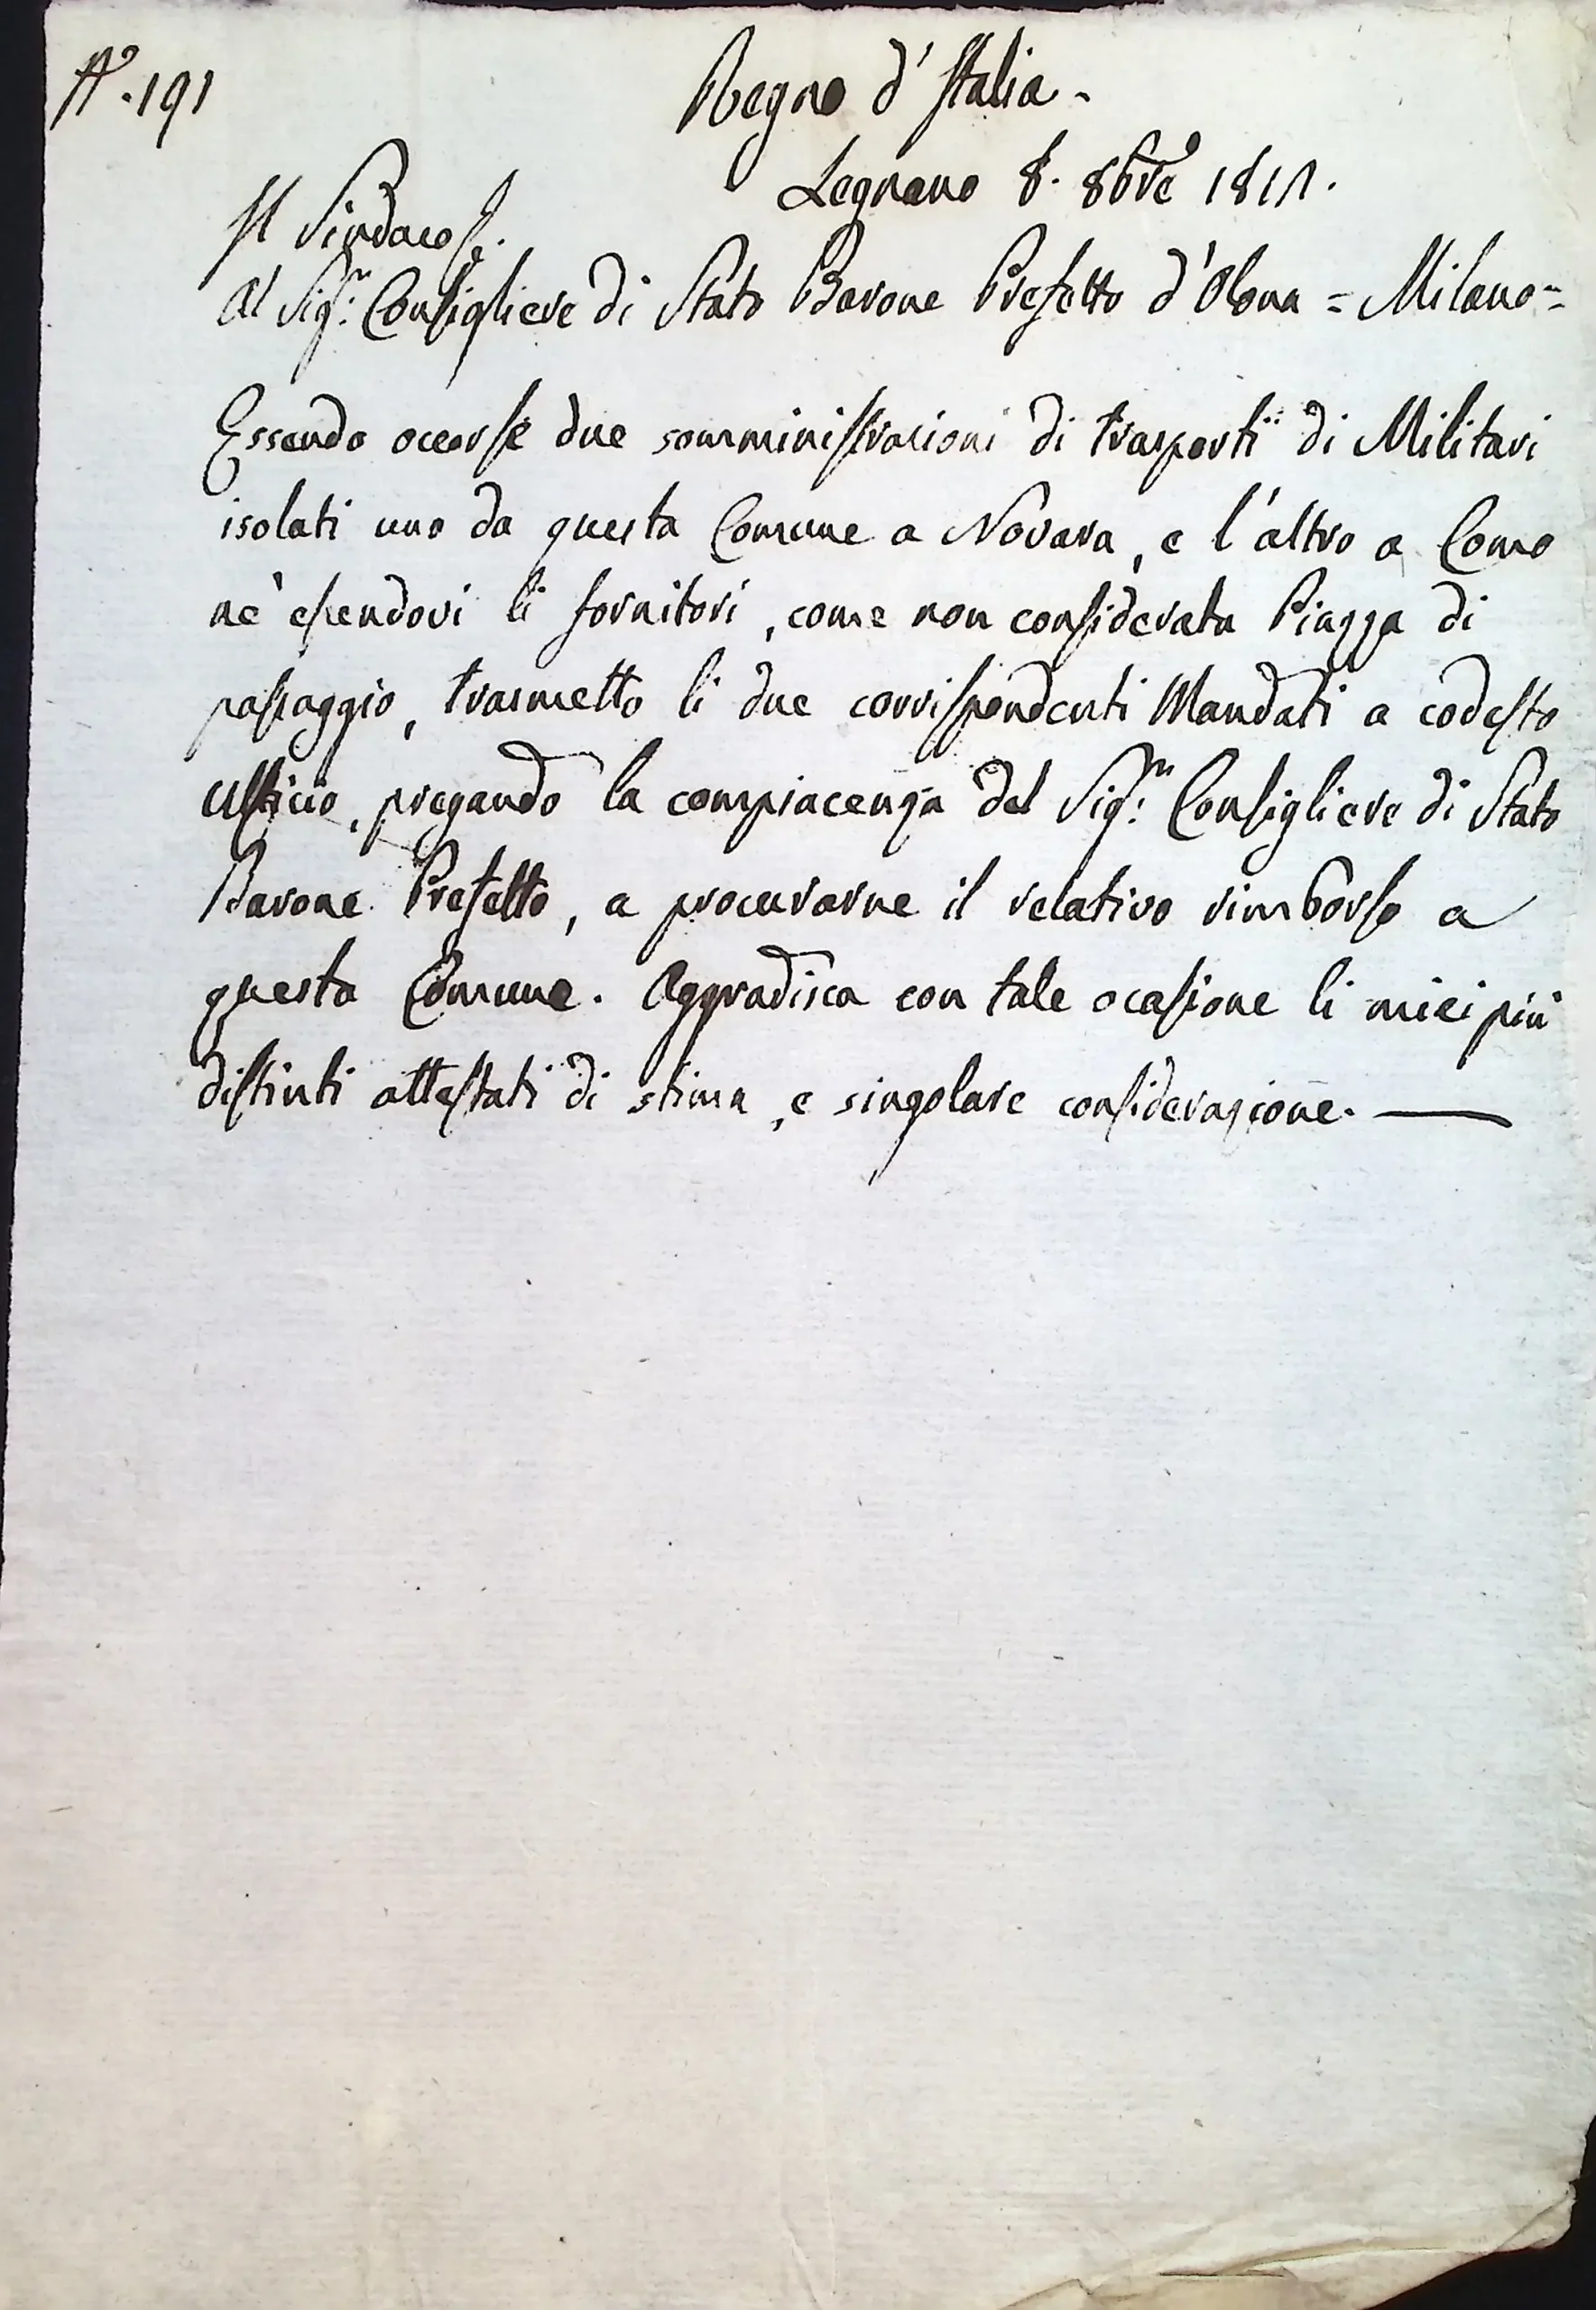 N.° 191
Regno d'Italia -
Legnano 8. 8bre 1811.
Il Sindaco
Al Sig.r Consigliere di Stato Barone Prefetto d'Olona = Milano =
Essendo ocorse due somministrazioni di trasporti di Militari
isolati uno da questa Comune a Novara, e l'altro a Como
nè essendovi li fornitori, come non considerata Piazza di
passaggio, trasmetto li due corrispondenti Mandati a codesto
Ufficio, pregando la compiacenza del Sig.r Consigliere di Stato
Barone Prefetto, a procurarne il relativo rimborso a
questa Comune. Aggradisca con tale ocasione li miei più
distinti attestati di stima, e singolare considerazione. —